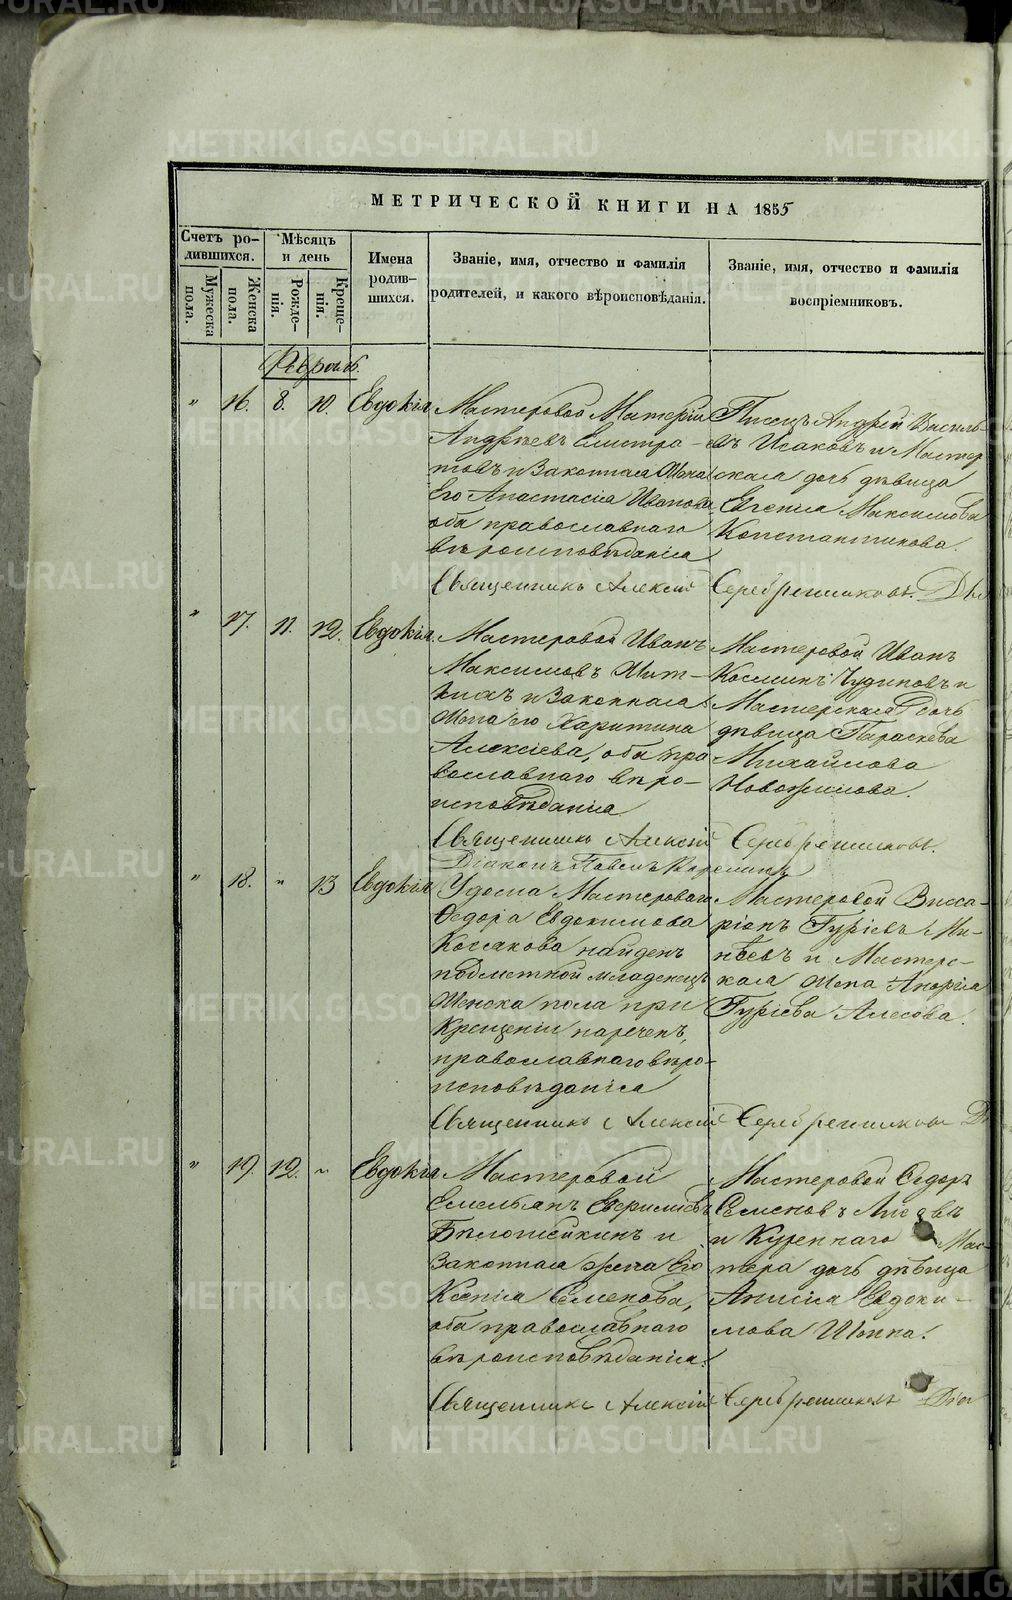 МЕТРИЧЕСКОЙ КНИГИ НА 1855
Счетъ ро-
дившихся.
Мужеска
пола.
Женска
пола.
Мѣсяцъ
и день
Рожде-
нія.
Креще-
нія.
Имена
родив-
шихся.
Званіе, имя, отчество и фамилія
родителей, и какого вѣроисповѣданія.
Званіе, имя, отчество и фамилія
воспріемниковъ.
Февраль.
" 16. 8. 10. Евдокія
Мастеровой
Андреевъ
и Законная Жена
Его Анастасія Иванова
оба православнаго
вѣроисповѣданія
Писецъ Андрей Василь-
евъ Исаковъ и Мастер
ская дочь дѣвица
Евгенія Максимова
Константинова.
Священникъ Алексій Серебренниковъ.
" 17. 11. 12. Евдокія
Мастеровой Иванъ
Максимовъ Шит-
кинъ и Законная
Жена его Харитина
Алексіева, оба пра
вославнаго вѣро-
исповѣданія
Мастеровой Иванъ
Космин Чудиновъ и
Мастерская дочь
дѣвица Параскева
Михайлова
Новожилова.
Священникъ Алексій Серебренниковъ.
Діаконъ Павелъ
" 18. " 13 Евдокія
У дома Мастероваго
Федора Евдокимова
Косакова найденъ
подметной младенецъ
Женска пола при
Крещеніи нареченъ,
православнаго вѣро-
исповѣданія
Мастеровой Висса-
ріонъ Гуріевъ Ми-
нѣевъ и Мастерс-
кая Жена
Гуріева
Священникъ Алексій Серебренниковъ
" 19. 12. " Евдокія
Мастеровой
Емельянъ
и
Законная жена Его
Ксенія Семенова,
оба православнаго
вѣроисповѣданія.
Мастеровой Федоръ
Семеновъ
и Куреннаго Мас-
тера дочь дѣвица
Анисія Евдоки-
мова
Священникъ Алексій Серебренниковъ
METRIKI.GASO-URAL.RU